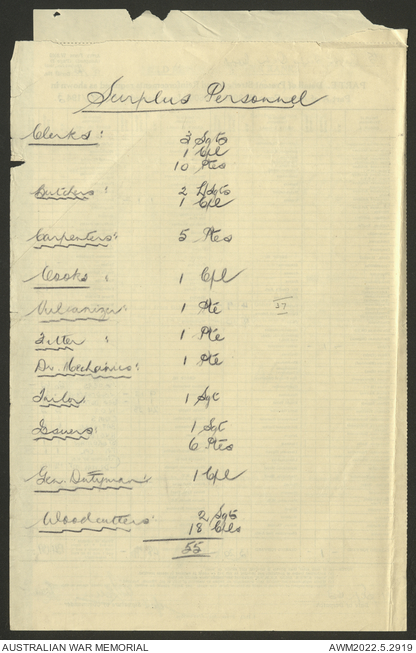 Surplus Personnel
Clerks: 3 Sgts
1 Cpl
10 Ptes
Butchers: 2 L/Sgts
1 Cpl
Carpenters: 5 Ptes
Cooks: 1 Cpl
Vulcanizer: 1 Pte
37
Fitter: 1 Pte
Dr. Mechanics: 1 Pte
Tailor: 1 Sgt
Issuers: 1 Sgt
6 Ptes
Gen. Dutyman: 1 Cpl
Woodcutters: 2 Sgts
18
55
AUSTRALIAN WAR MEMORIAL
AWM2022.5.2919